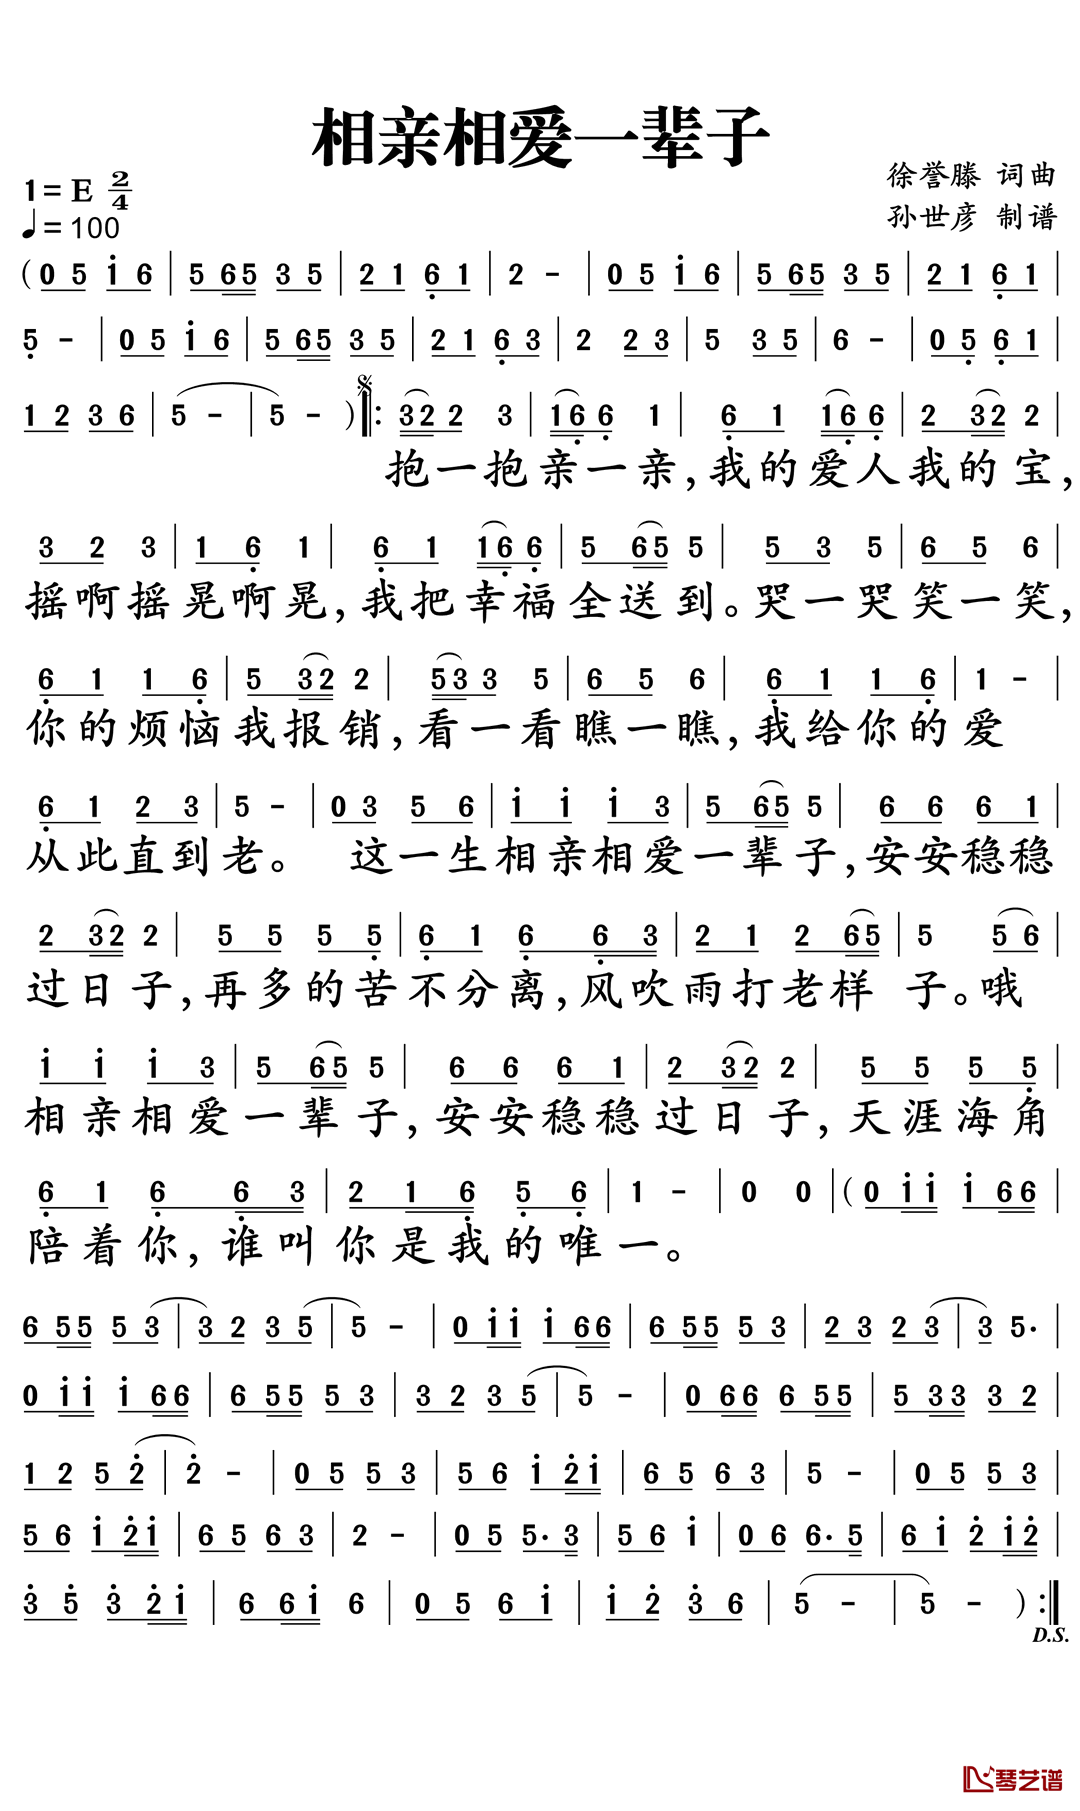 相亲相爱一辈子
徐誉滕 词曲
孙世彦 制谱
1=E 2/4
♩=100
(0 5 i 6 | 5 65 3 5 | 2 1 6 1 | 2 - | 0 5 i 6 | 5 65 3 5 | 2 1 6 1 |
5 - | 0 5 i 6 | 5 65 3 5 | 2 1 6 3 | 2 2 3 | 5 3 5 | 6 - | 0 5 6 1 |
1 2 3 6 | 5 - | 5 - ) ‖: 32 2 3 | 16 6 1 | 6 1 16 6 | 2 32 2 |
抱一抱亲一亲,我的爱人我的宝,
3 2 3 | 1 6 1 | 6 1 16 6 | 5 65 5 | 5 3 5 | 6 5 6 |
摇啊摇晃啊晃,我把幸福全送到。哭一哭笑一笑,
6 1 1 6 | 5 32 2 | 53 3 5 | 6 5 6 | 6 1 1 6 | 1 - |
你的烦恼我报销,看一看瞧一瞧,我给你的爱
6 1 2 3 | 5 - | 0 3 5 6 | i i i 3 | 5 65 5 | 6 6 6 1 |
从此直到老。 这一生相亲相爱一辈子,安安稳稳
2 32 2 | 5 5 5 5 | 6 1 6 6 3 | 2 1 2 65 | 5 5 6 |
过日子,再多的苦不分离,风吹雨打老样 子。哦
i i i 3 | 5 65 5 | 6 6 6 1 | 2 32 2 | 5 5 5 5 |
相亲相爱一辈子,安安稳稳过日子,天涯海角
6 1 6 6 3 | 2 1 6 5 6 | 1 - | 0 0 | (0 i i i 66 |
陪着你,谁叫你是我的唯一。
6 55 5 3 | 3 2 3 5 | 5 - | 0 i i i 66 | 6 55 5 3 | 2 3 2 3 | 3 5. |
0 i i i 66 | 6 55 5 3 | 3 2 3 5 | 5 - | 0 66 6 55 | 5 33 3 2 |
1 2 5 2 | 2 - | 0 5 5 3 | 5 6 i 2i | 6 5 6 3 | 5 - | 0 5 5 3 |
5 6 i 2i | 6 5 6 3 | 2 - | 0 5 5. 3 | 5 6 i | 0 6 6. 5 | 6 i 2 i2 |
3 5 3 2i | 6 6i 6 | 0 5 6 i | i 2 3 6 | 5 - | 5 - ) :‖
D.S.
琴艺谱